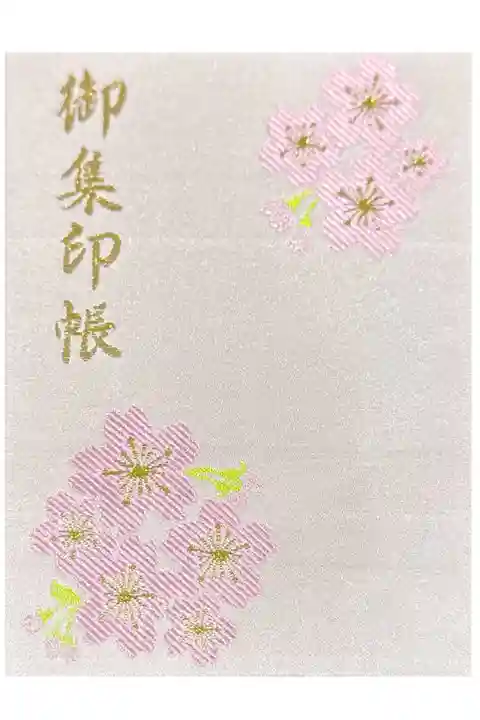 御集印帳